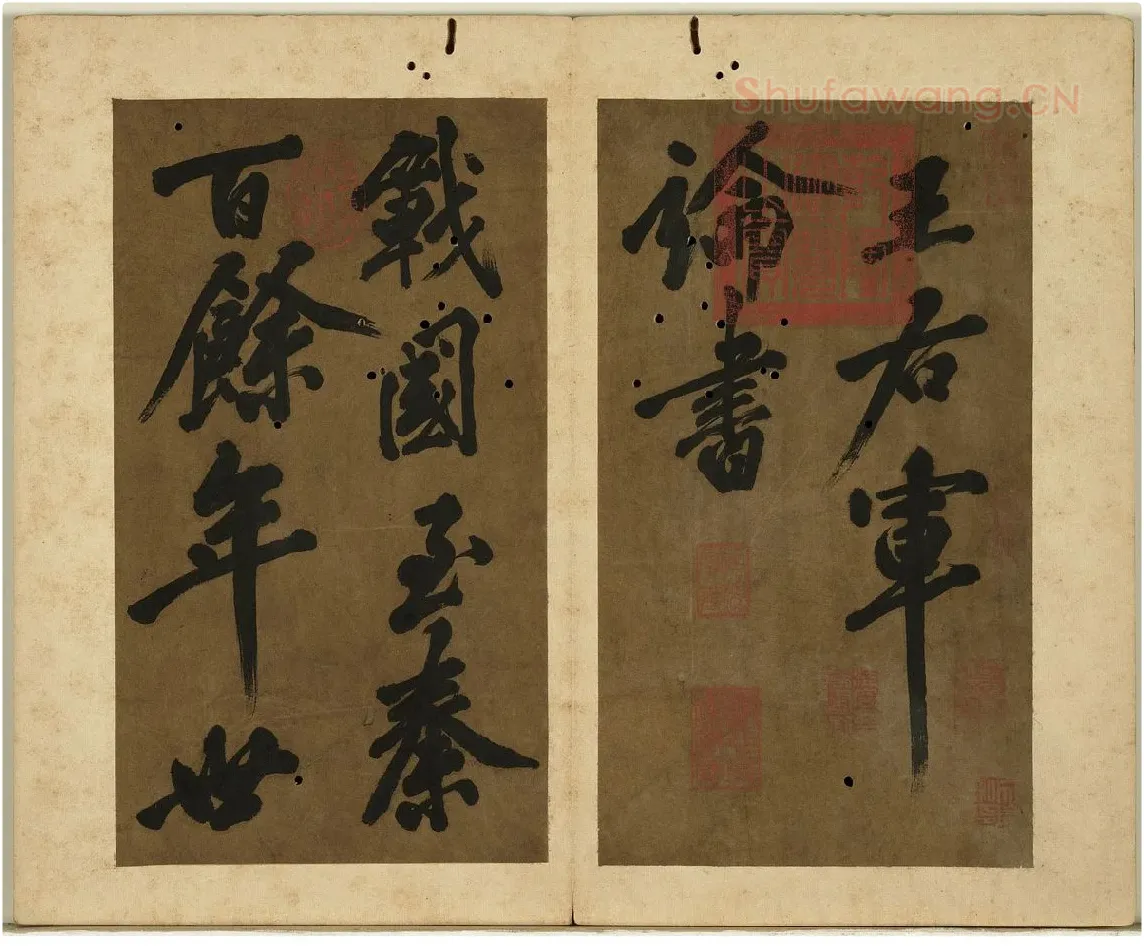 Shufawang.CN
王右軍
論書
戰國至秦
百餘年世